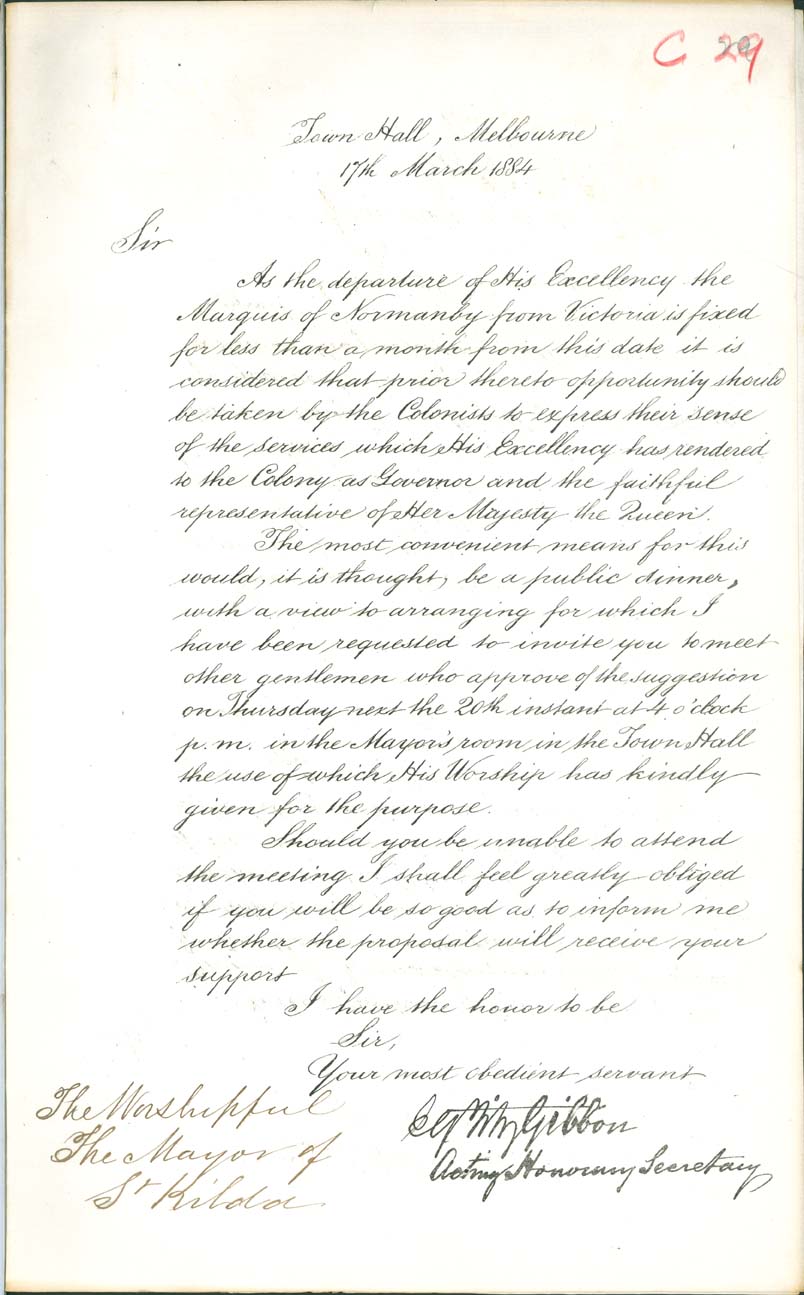 C 29
Town Hall, Melbourne
17th March 1884
Sir
As the departure of His Excellency the
Marquis of Normanby from Victoria is fixed
for less than a month from this date it is
considered that prior thereto opportunity should
be taken by the Colonists to express their sense
of the services which His Excellency has rendered
to the Colony as Governor and the faithful
representative of Her Majesty the Queen.
The most convenient means for this
would, it is thought, be a public dinner,
with a view to arranging for which I
have been requested to invite you to meet
other gentlemen who approve of the suggestion
on Thursday next the 20th instant at 4 o'clock
p.m. in the Mayor's room in the Town Hall
the use of which His Worship has kindly
given for the purpose.
Should you be unable to attend
the meeting I shall feel greatly obliged
if you will be so good as to inform me
whether the proposal will receive your
support
I have the honor to be
Sir,
Your most obedient servant
The Worshipful
The Mayor of
St Kilda
FitzGibbon
Acting Honorary Secretary